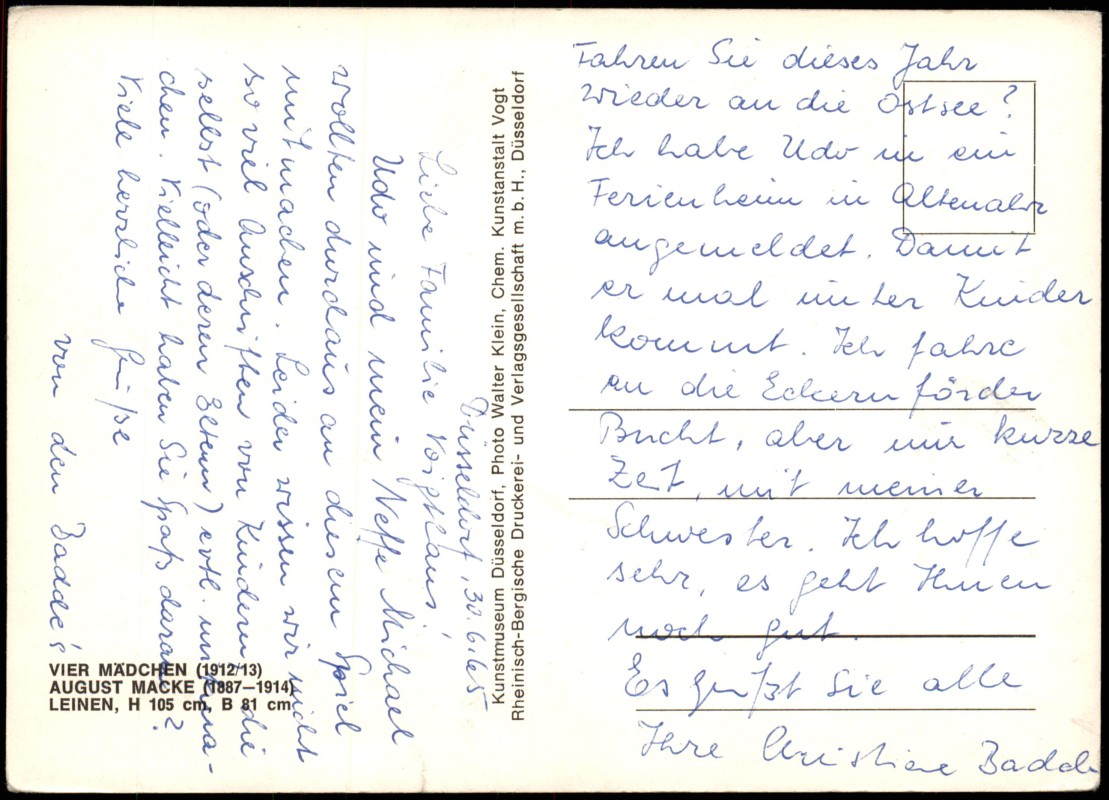 Düsseldorf, 30.6.65
Liebe Familie Voigtländ!
Udo und mein Neffe Michael
wollten durchaus an diesem Spiel
mitmachen. Leider wissen wir nicht
so viel Anschriften von Kindern die
selbst (oder deren Eltern) evtl. mitma-
chen. Vielleicht haben Sie Spaß daran?
Viele herzliche Grüße
von den Badde's
Fahren Sie dieses Jahr
wieder an die Ostsee?
Ich habe Udo in ein
Ferienheim in Altenahr
angemeldet. Damit
er mal unter Kinder
kommt. Ich fahre
an die Eckernförder
Bucht, aber nur kurze
Zeit, mit meiner
Schwester. Ich hoffe
sehr, es geht Ihnen
noch gut.
Es grüßt Sie alle
Ihre Christiane Badde
Kunstmuseum Düsseldorf, Photo Walter Klein, Chem. Kunstanstalt Vogt
Rheinisch-Bergische Druckerei- und Verlagsgesellschaft m. b. H., Düsseldorf
VIER MÄDCHEN (1912/13)
AUGUST MACKE (1887—1914)
LEINEN, H 105 cm, B 81 cm